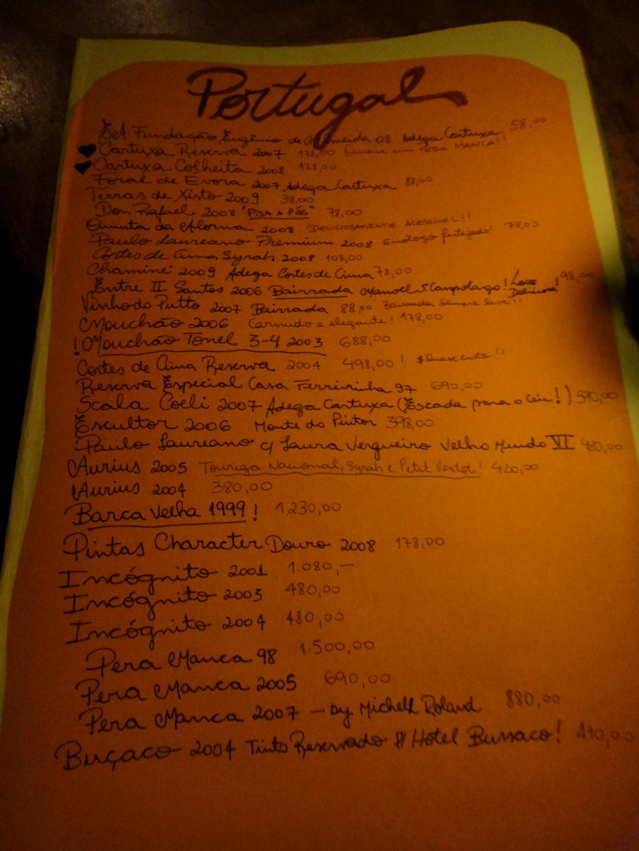 Portugal
EA Fundação Eugênio de Almeida 08 Adega Cartuxa 58,00
♥ Cartuxa Reserva 2007 178,00 Quase um PERA MANCA!!
♥ Cartuxa Colheita 2008 128,00
Foral de Evora 2007 Adega Cartuxa 88,00
Terras de Xisto 2009 38,00
Dom Rafael 2008 "PISA A PÉS" 78,00
Quinta da Alorna 2008 DELICIOSAMENTE ACESSÍVEL!!
Paulo Laureano Premium 2008 Enólogo festejado! 78,00
Cortes de Cima Syrah 2008 108,00
Chaminé 2009 Adega Cortes de Cima 78,00
Entre II Santos 2006 Bairrada Manoel S. Campolargo! 98,00
Vinho do Putto 2007 Bairrada 88,00 Bairrada Sempre
Mouchão 2006 Carnudo e elegante! 478,00
! Mouchão Tonel 3-4 2003 688,00
Cortes de Cima Reserva 2004 498,00!
Reserva Especial Casa Ferreirinha 97 690,00
Scala Coeli 2007 Adega Cartuxa (Escada para o céu!) 590,00
Escultor 2006 Monte do Pintor 398,00
Paulo Laureano c/ Laura Vergueiro Velho Mundo VI 480,00
Aurius 2005 Touriga Nacional, Syrah e Petit Verdot! 420,00
Aurius 2004 380,00
Barca Velha 1999! 1,230,00
Pintas Character Douro 2008 178,00
Incógnito 2001 1.080,-
Incógnito 2003 480,00
Incógnito 2004 480,00
Pera Manca 98 1.500,00
Pera Manca 2005 690,00
Pera Manca 2007 - by Michell Roland 880,00
Buçaco 2004 Tinto Reservado Hotel Bussaco! 410,00